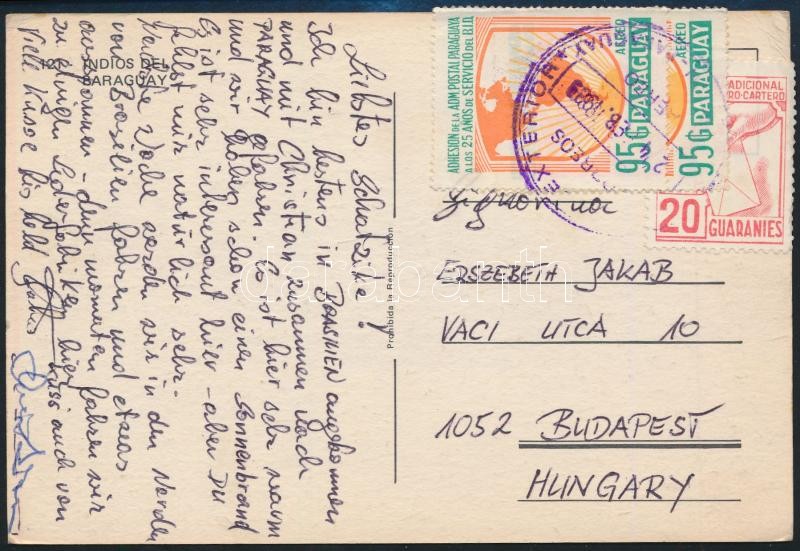 121 INDIOS DEL
PARAGUAY
Liebstes Schatzike!
Ich bin bestens in BRASILIEN angekommen
und mit Christian zusammen nach
PARAGUAY gefahren. Es ist hier sehr warm
und wir haben schon einen Sonnenbrand
Es ist sehr interessant hier – aber Du
fehlst mir natürlich sehr.
Woche werden wir in den Norden
von Brasilien fahren und etwas
ausspannen – denn momentan fahren wir
zu einigen Lederfabriken hier
Viele Küsse bis bald
Kuss auch von
Prohibida la Reproducción
ADHESION DE LA ADM. POSTAL PARAGUAYA
A LOS 25 AÑOS DE SERVICIO DEL B.I.D.
AEREO
95G PARAGUAY
AEREO
95G PARAGUAY
EXTERIOR
CORREOS
ADICIONAL
PRO-CARTERO
20 GUARANIES
ERSZEBETH JAKAB
VACI UTCA 10
1052 BUDAPEST
HUNGARY
darabanth